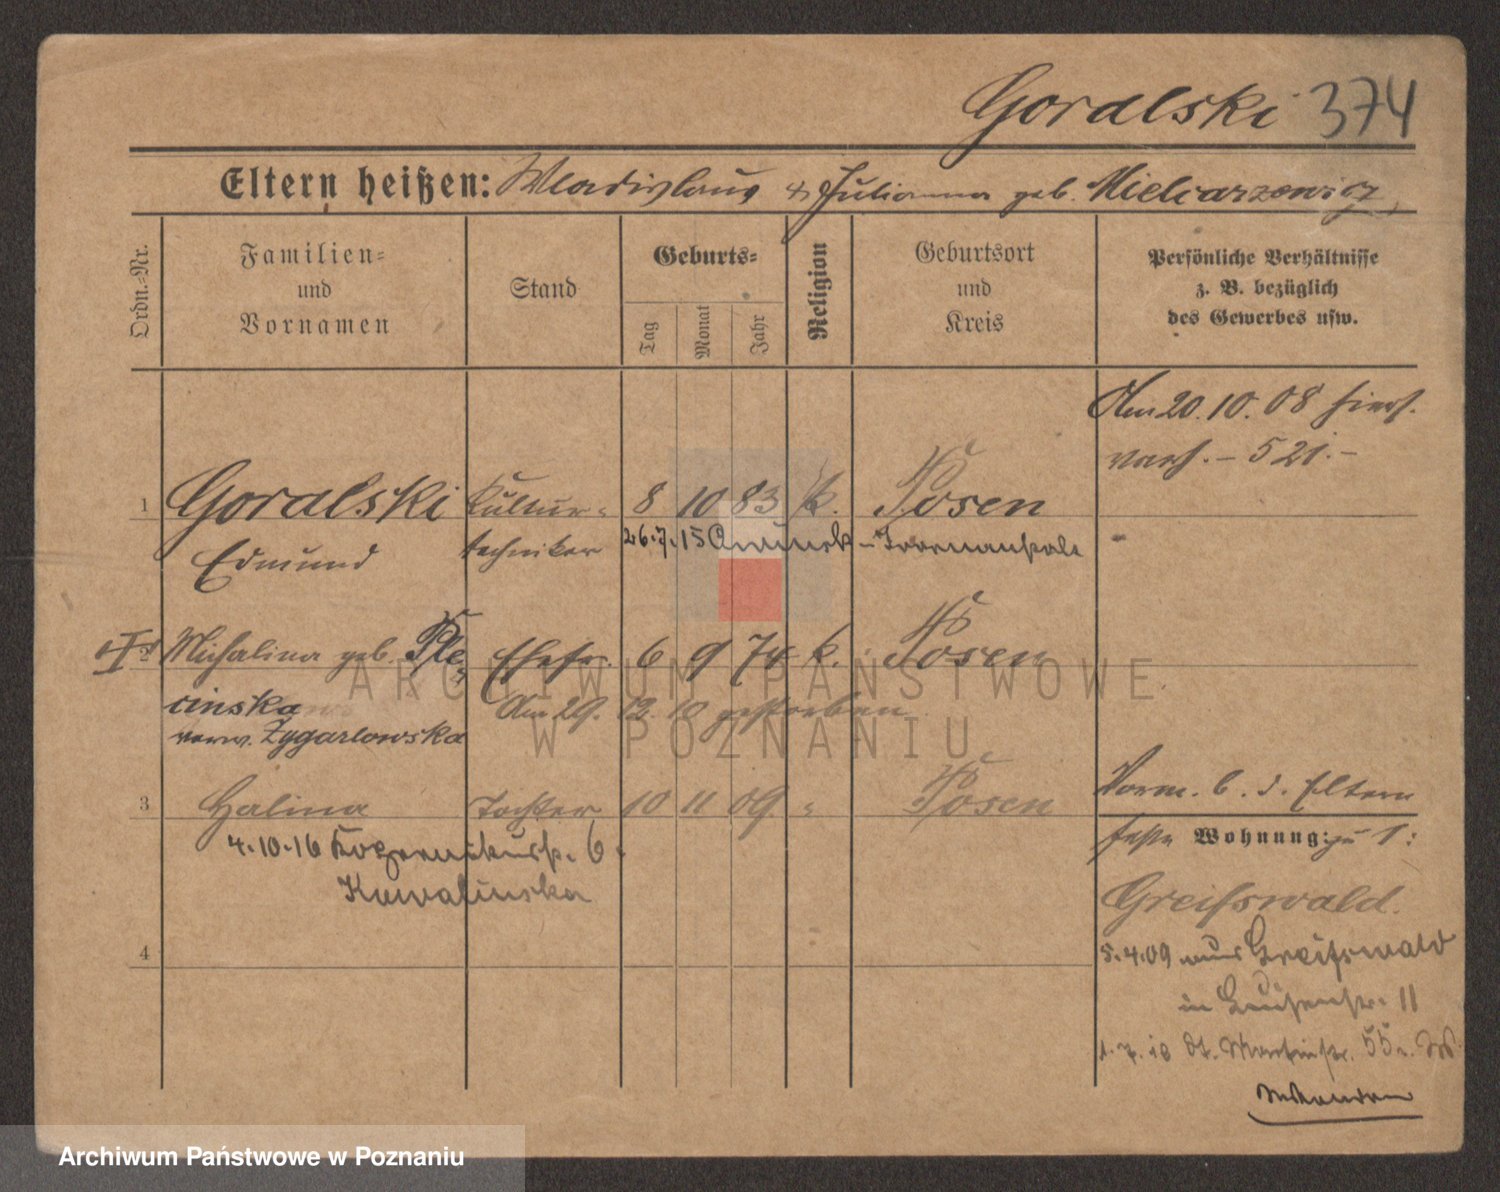 Goralski 374
Eltern heißen: Wladislaus & Julianna geb. Mielcarzewicz
Ordn.-Nr.
Familien-
und
Vornamen
Stand
Geburts-
Tag
Monat
Jahr
Religion
Geburtsort
und
Kreis
Persönliche Verhältnisse
z. B. bezüglich
des Gewerbes usw.
Am 20.10.08 hierh.
521.-
1 Goralski Kultur- 8 10 83 k. Posen
Edmund techniker 26.7.15
2 Michalina geb. Ple- Ehefr. 6 9 74 k. Posen
cinska Am 29. 12. 10 gestorben
verw. Zygarlowska
3 Halina Tochter 10 11 09 " Posen
Vorm. b. d. Eltern
4.10.16 6.
Kuwalinska
feste Wohnung: zu 1:
Greifswald.
4
5.4.09 aus Greifswald
in Luisenstr. 11
1.7.10 St. Martinstr. 55
ARCHIWUM PAŃSTWOWE
W POZNANIU
Archiwum Państwowe w Poznaniu